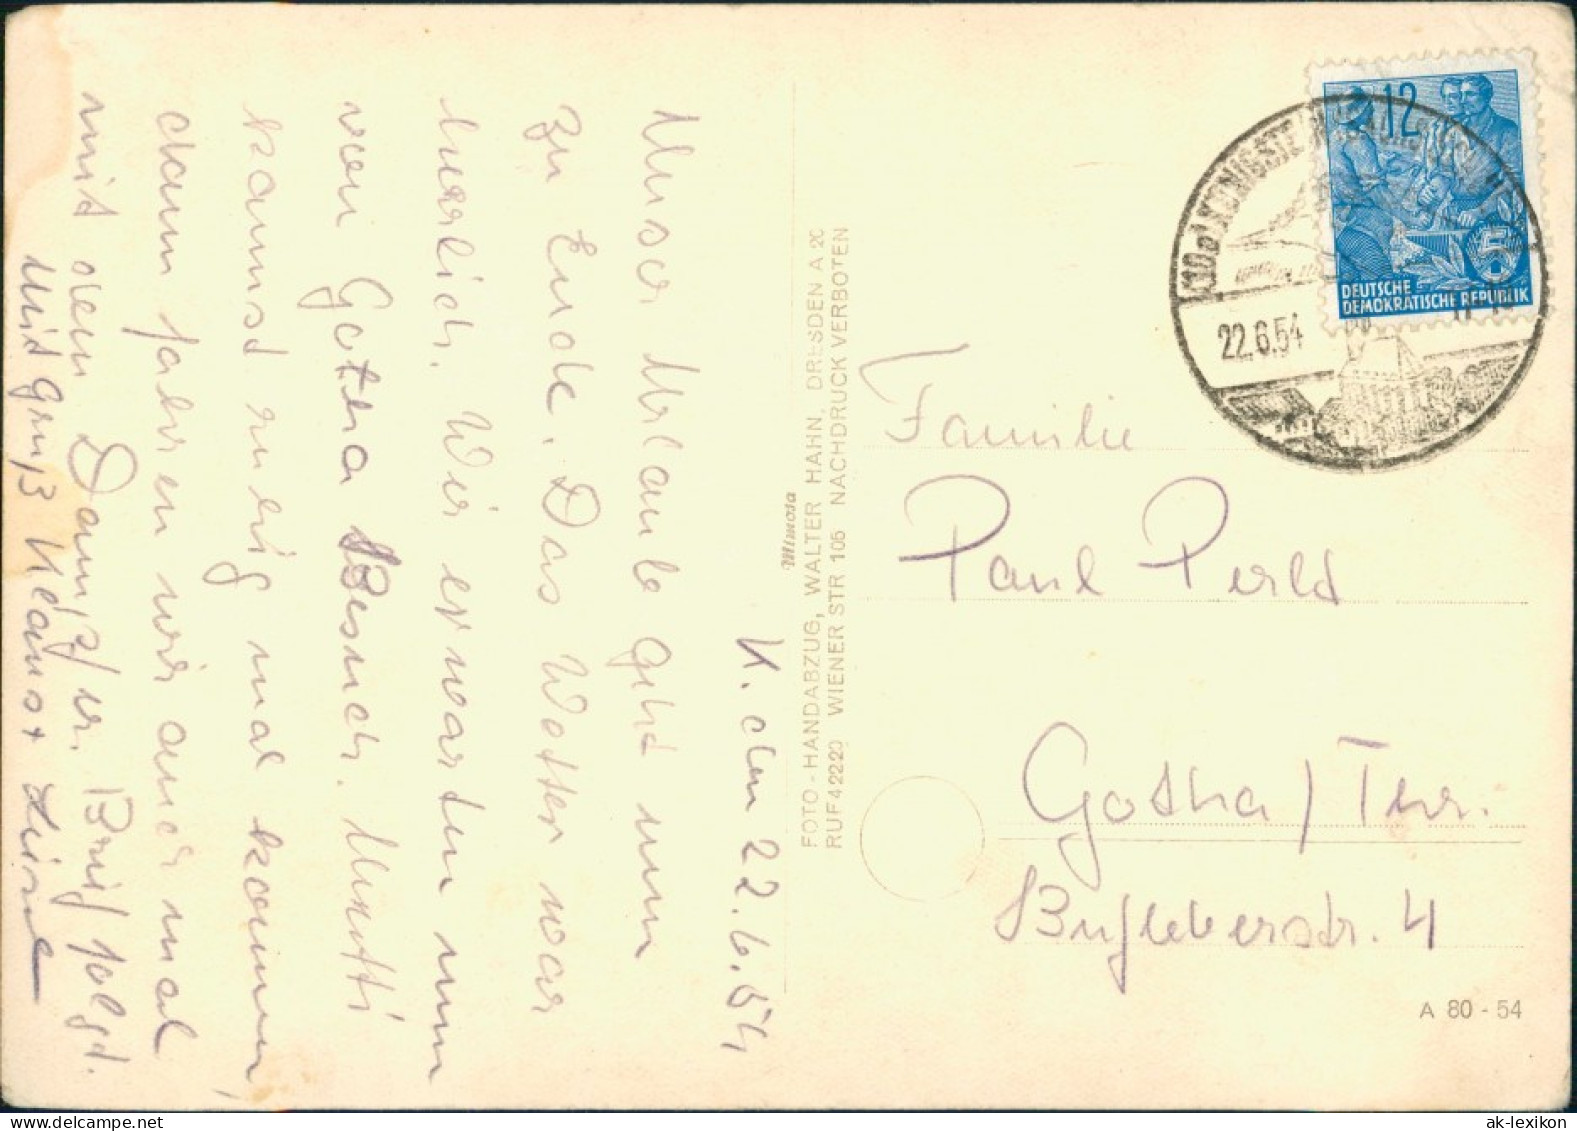 K. den 22.6.54
Unser Urlaub geht nun
zu Ende. Das Wetter war
herrlich. Wir erwarten nun
von Gotha Besuch. Mutti
kannst ruhig mal kommen,
dann fahren wir auch mal
mit dem Dampfer. Brief folgt.
Mit Gruß Klaus + Luise
Mimosa
FOTO-HANDABZUG, WALTER HAHN, DRESDEN A 20
RUF 42220 WIENER STR 105 NACHDRUCK VERBOTEN
12
5
DEUTSCHE
DEMOKRATISCHE REPUBLIK
(10a) KÖNIGSTEIN
22.6.54
Familie
Paul
Gotha / Thür.
4
A 80 - 54
ak-lexikon